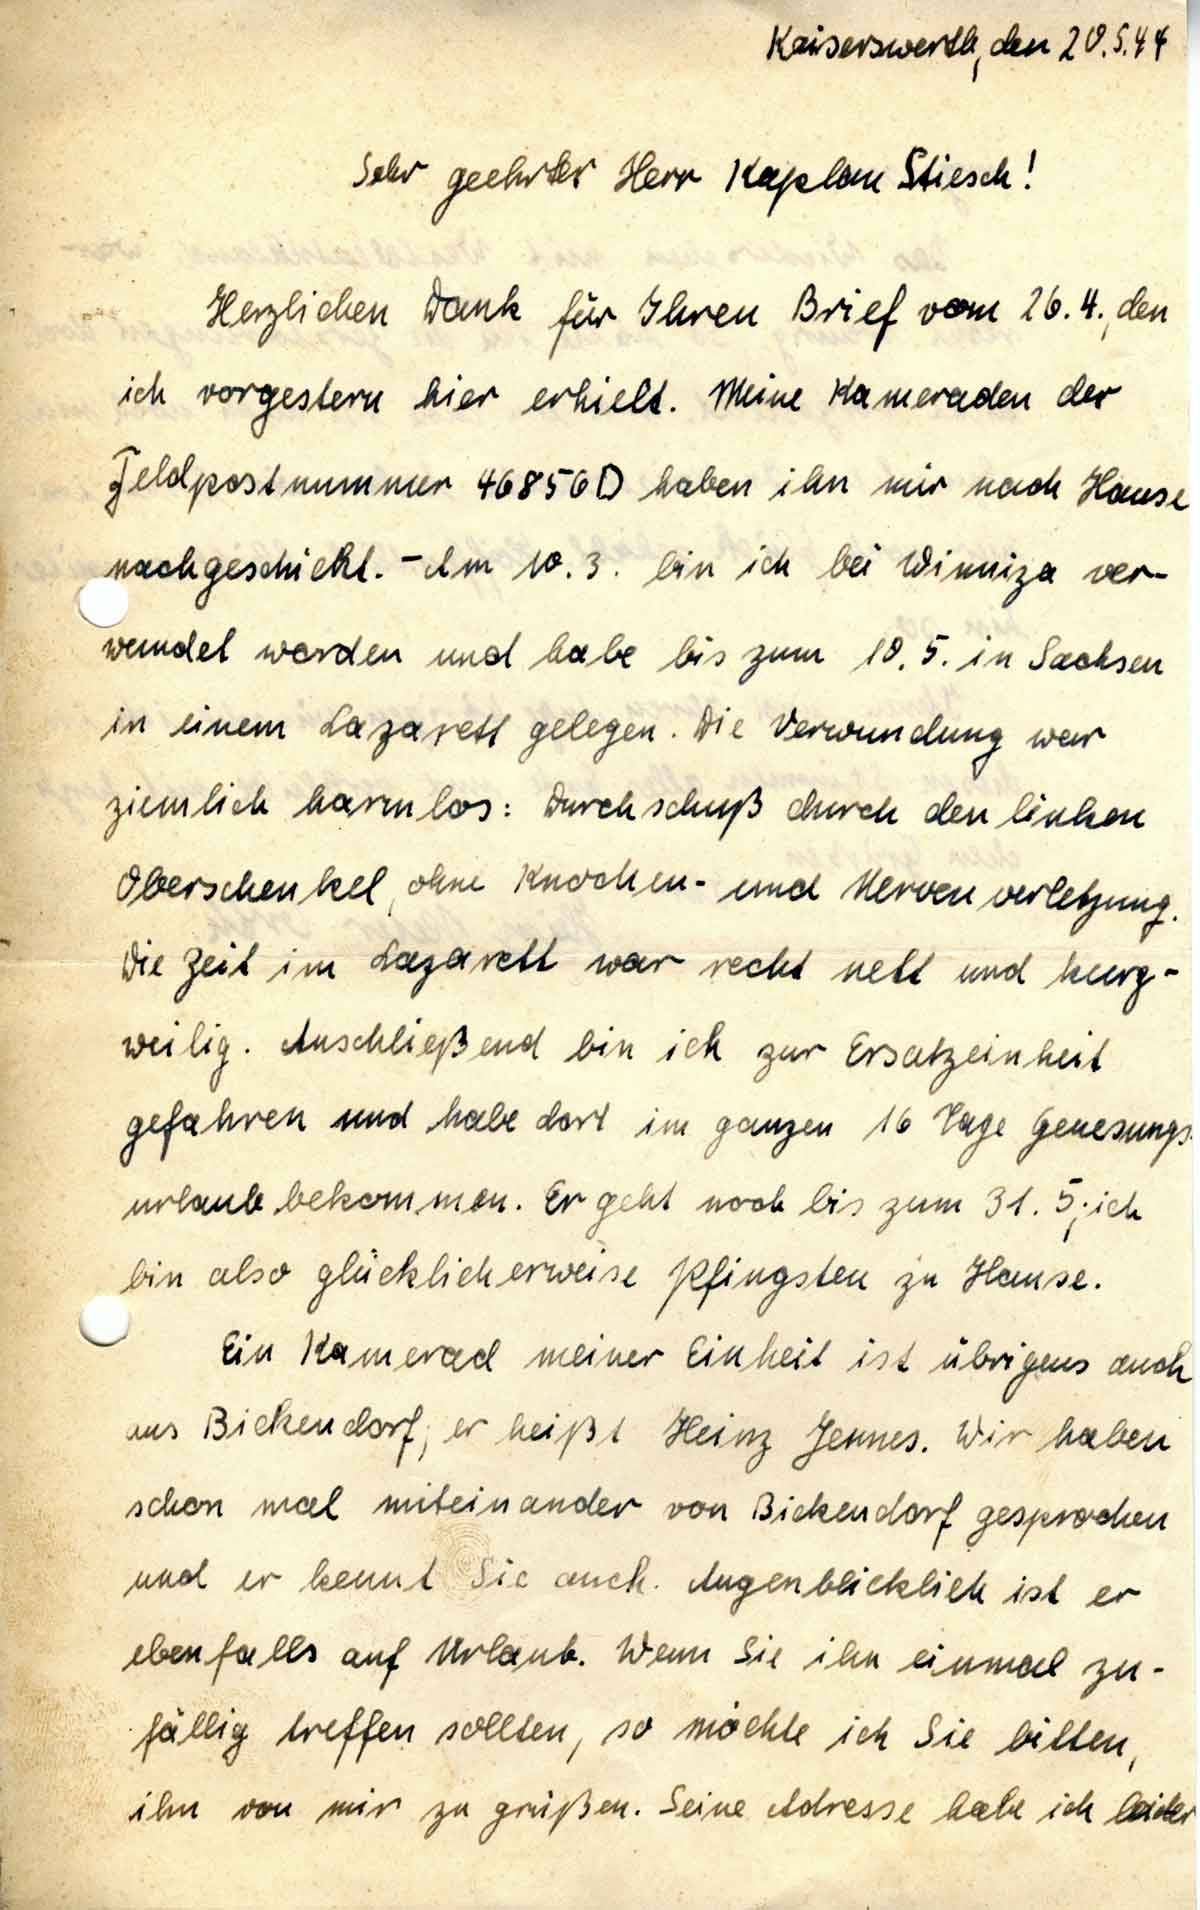 Kaiserswerth, den 20.5.44
Sehr geehrter Herr Kaplan Stiesch!
Herzlichen Dank für Ihren Brief vom 26.4., den
ich vorgestern hier erhielt. Meine Kameraden der
Feldpostnummer 46856D haben ihn mir nach Hause
nachgeschickt. - Am 10.3. bin ich bei Winniza ver-
wundet worden und habe bis zum 10.5. in Sachsen
in einem Lazarett gelegen. Die Verwundung war
ziemlich harmlos: Durchschuß durch den linken
Oberschenkel, ohne Knochen- und Nervenverletzung.
Die Zeit im Lazarett war recht nett und kurz-
weilig. Anschließend bin ich zur Ersatzeinheit
gefahren und habe dort im ganzen 16 Tage Genesungs-
urlaub bekommen. Er geht noch bis zum 31.5; ich
bin also glücklicherweise Pfingsten zu Hause.
Ein Kamerad meiner Einheit ist übrigens auch
aus Bickendorf; er heißt Heinz Jennes. Wir haben
schon mal miteinander von Bickendorf gesprochen
und er kennt Sie auch. Augenblicklich ist er
ebenfalls auf Urlaub. Wenn Sie ihn einmal zu-
fällig treffen sollten, so möchte ich Sie bitten,
ihn von mir zu grüßen. Seine Adresse habe ich leider